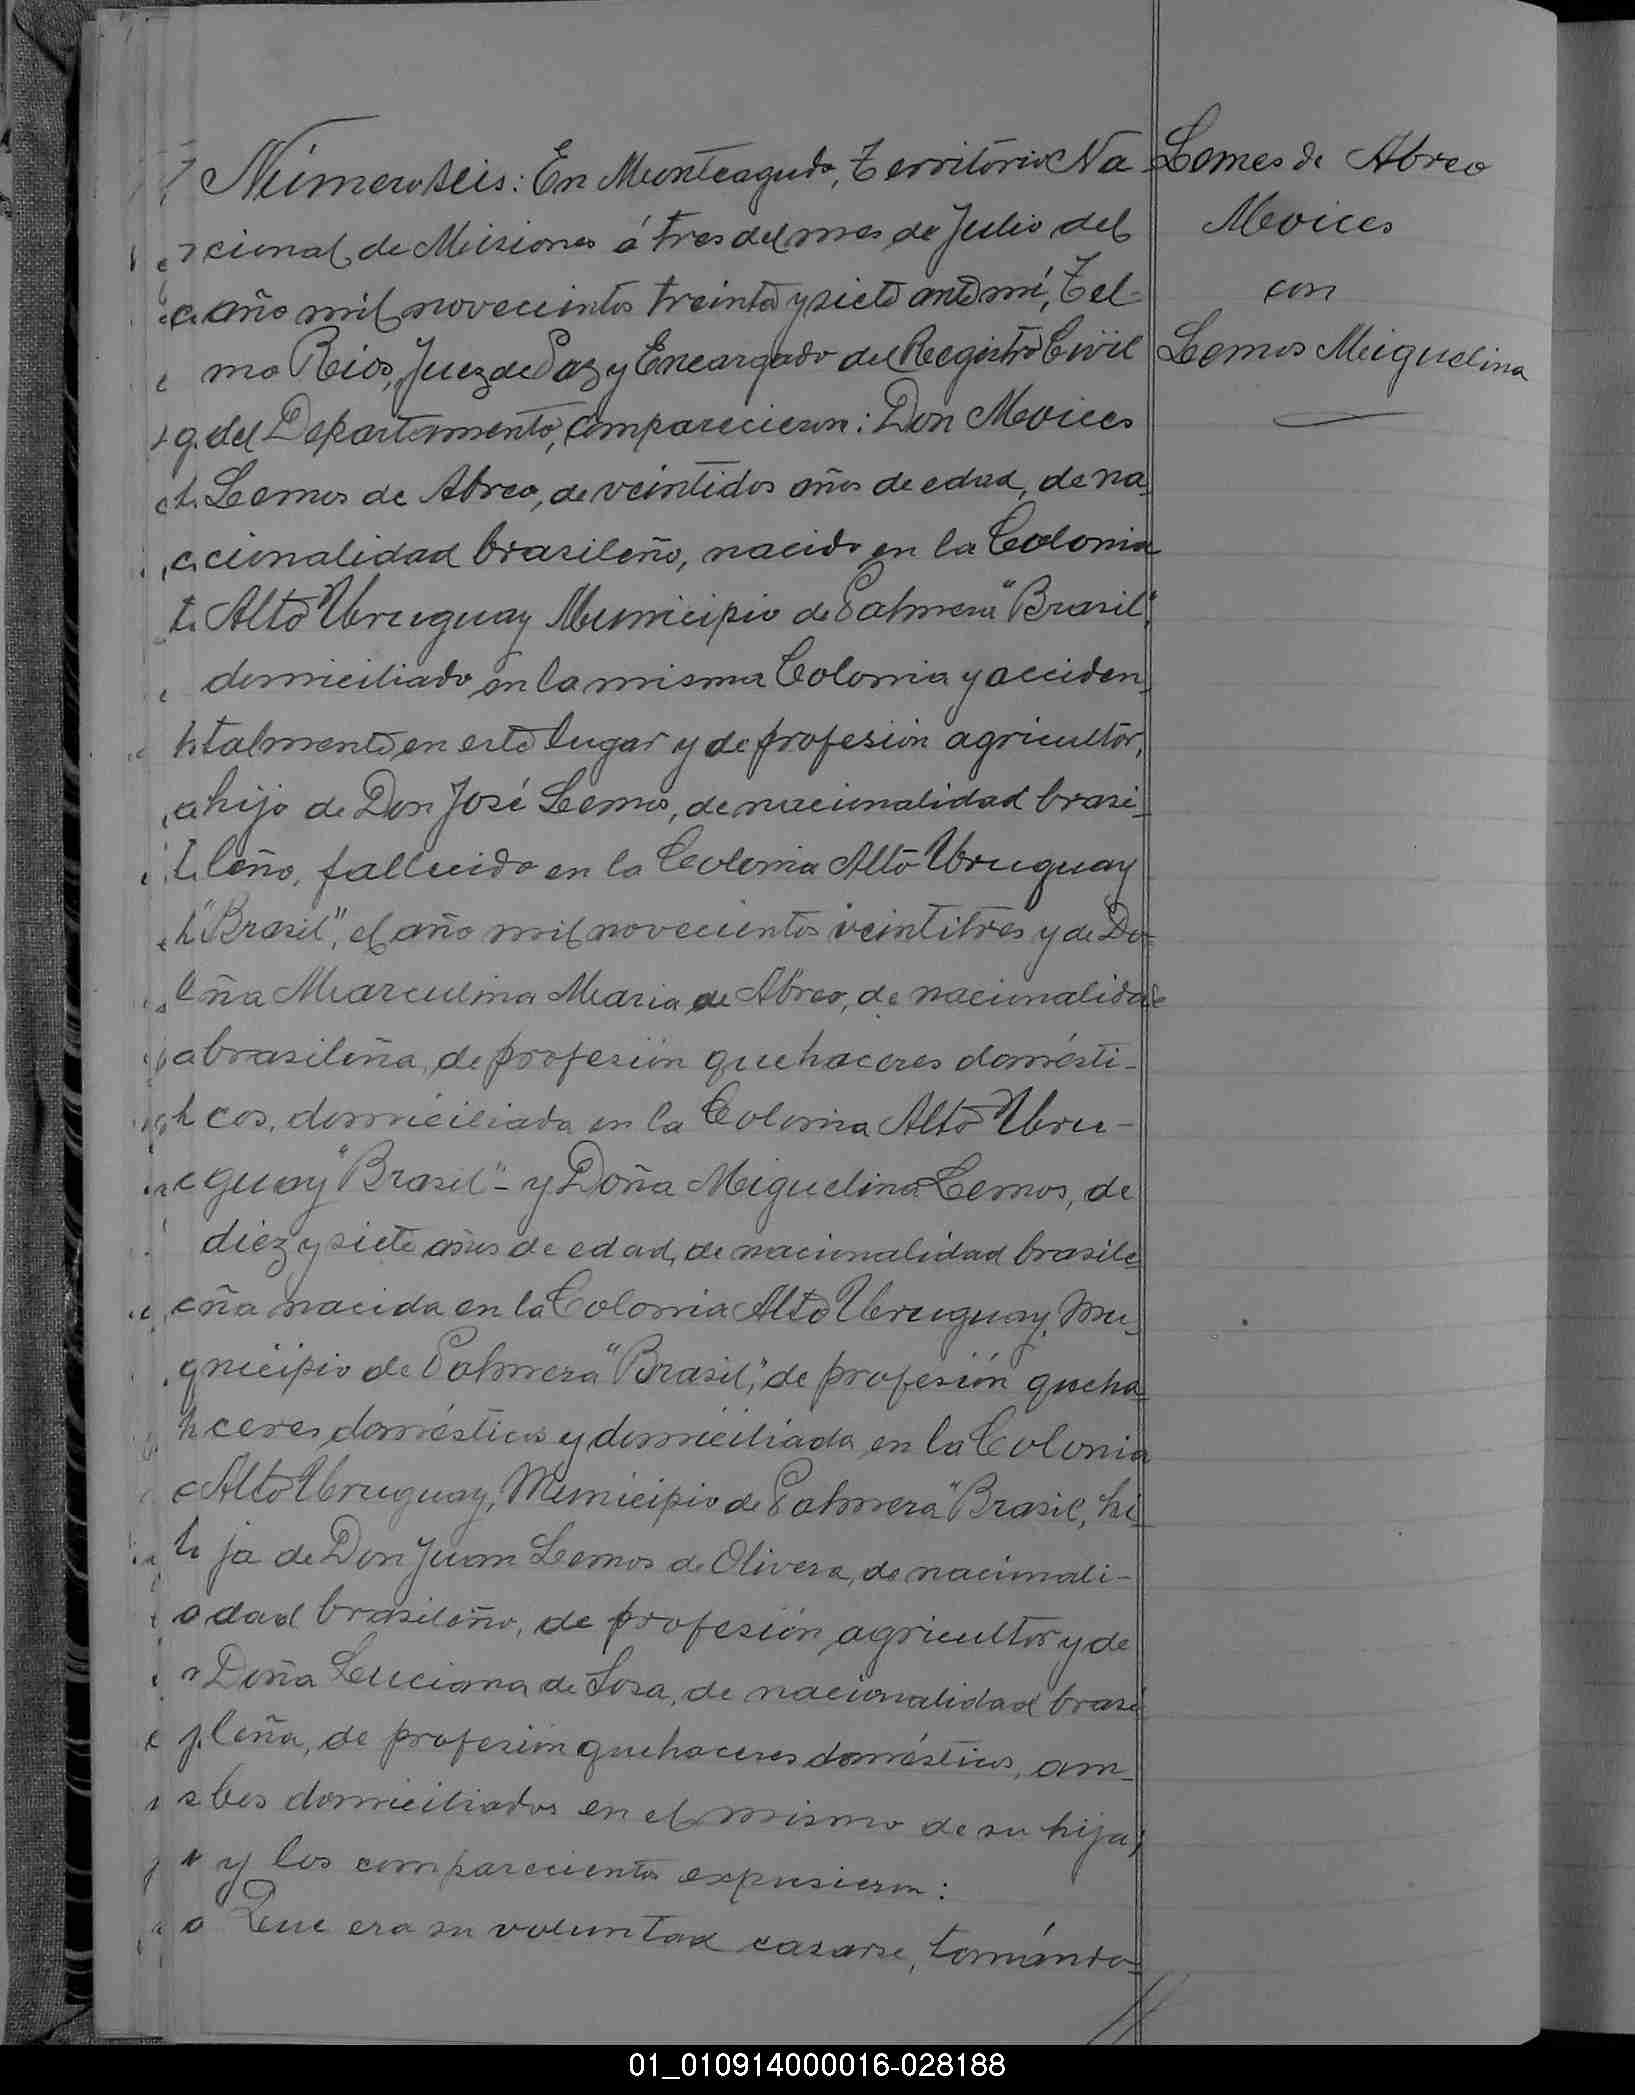 Número seis: En Monteagudo, Territorio Na
cional de Misiones á tres del mes de Julio del
año mil novecientos treinta y siete ante mí, Tel-
mo Rios, Juez de Paz y Encargado del Registro Civil
del Departamento, comparecieron: Don Moices
Lemos de Abreo, de veintidos años de edad, de na-
cionalidad brasileño, nacido en la Colonia
Alto Uruguay Municipio de Palmera "Brasil",
domiciliado en la misma Colonia y acciden-
talmente en este lugar y de profesión agricultor,
hijo de Don José Lemos, de nacionalidad brasi-
leño, fallecido en la Colonia Alto Uruguay
"Brasil", el año mil novecientos veintitres y de Do-
ña Marculina Maria de Abreo, de nacionalidad
brasileña, de profesión quehaceres domésti-
cos, domiciliada en la Colonia Alto Uru-
guay "Brasil" - y Doña Miguelina Lemos, de
diez y siete años de edad, de nacionalidad brasile
ña nacida en la Colonia Alto Uruguay, Mu-
nicipio de Palmera "Brasil", de profesión queha-
ceres domésticos y domiciliada en la Colonia
Alto Uruguay, Municipio de Palmera "Brasil, hi-
ja de Don Juan Lemos de Olivera, de nacionali-
dad brasileño, de profesión agricultor y de
Doña Luciana de Sosa, de nacionalidad brasi
leña, de profesión quehaceres domésticos, am-
bos domiciliados en el mismo de su hija;
y los comparecientes expusieron:
Que era su voluntad casarse, tomándo-
Lemes de Abreo
Moices
con
Lemos Miguelina
01_010914000016-028188